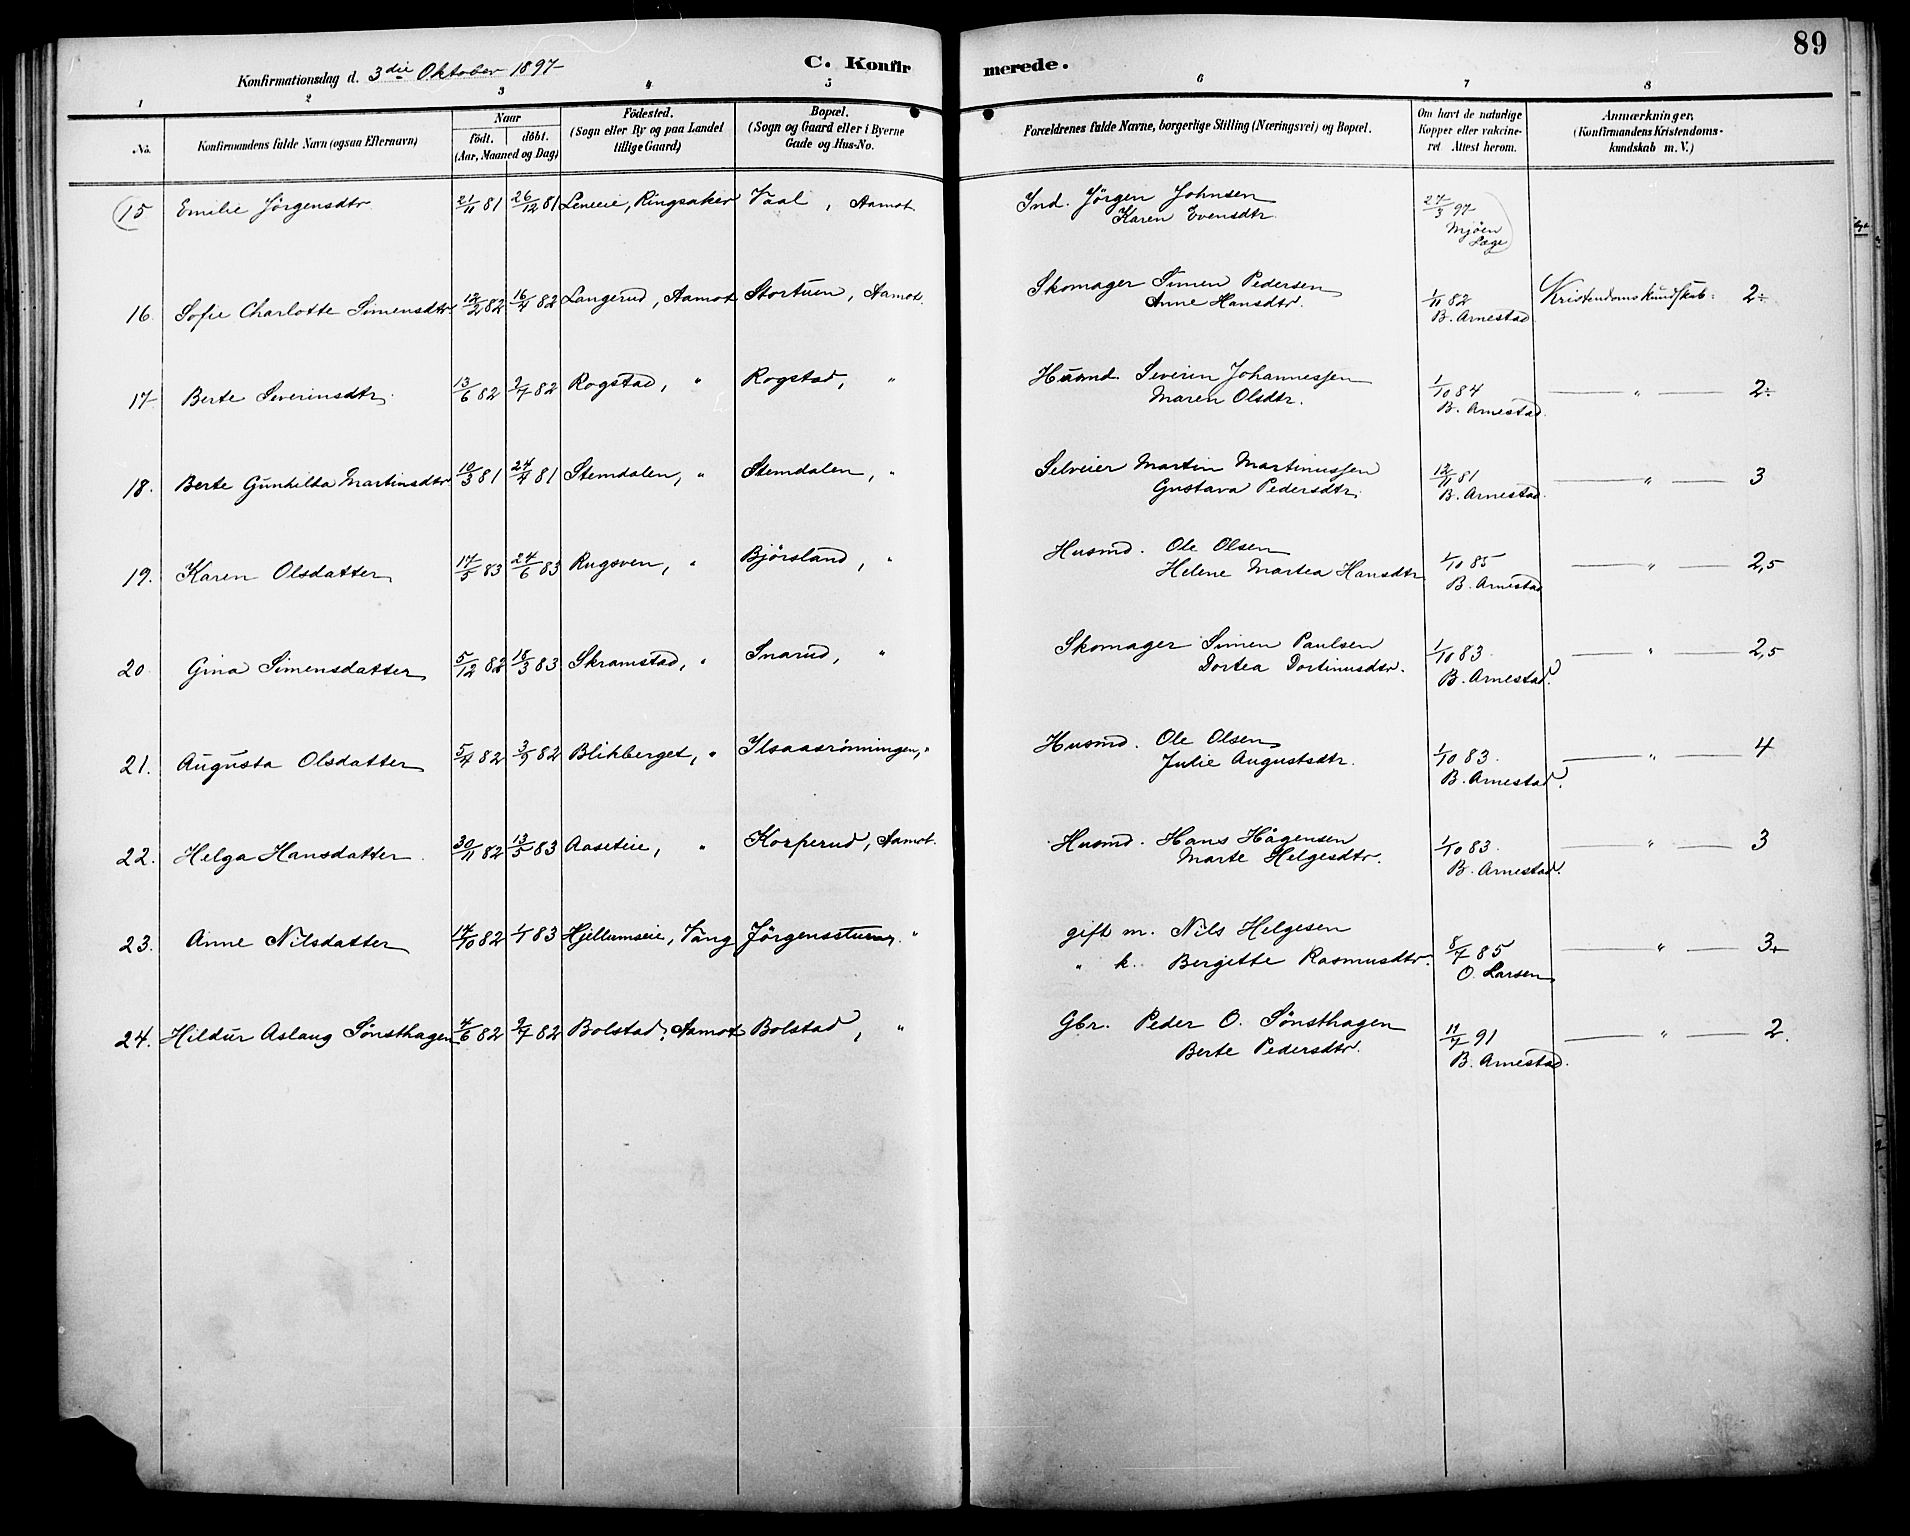 89
Konfirmationsdag d. 3die Oktober 1897
C. Konfirmerede.
1 2 3 4 5 6 7 8
No.
Konfirmandens fulde Navn (ogsaa Efternavn)
Naar
födt. döbt.
(Aar, Maaned og Dag)
Födested.
(Sogn eller By og paa Landet
tillige Gaard)
Bopæl.
(Sogn og Gaard eller i Byerne
Gade og Hus-No.
Forældrenes fulde Navne, borgerlige Stilling (Næringsvei) og Bopæl.
Om havt de naturlige
Kopper eller vakcine-
ret Attest herom.
Anmærkninger,
(Konfirmandens Kristendoms-
kundskab m. V.)
15 Emilie Jörgensdtr. 21/11 81 26/12 81 Leneeie, Ringsaker Vaal, Aamot Ind. Jörgen Johnsen 27/3 97
Karen Evensdtr. Mjöen
Læge
16. Sofie Charlotte Simensdtr 12/2 82 16/4 82 Langerud, Aamot Stortuen, Aamot. Skomager Simen Pedersen 1/11 82 Kristendomskundskab: 2÷
Anne Hansdtr. B. Arnestad
17 Berte Severinsdtr. 13/6 82 2/7 82 Rogstad, " Rogstad, " Husmd. Severin Johannessen 1/10 84 — " — 2÷
Maren Olsdtr. B. Arnestad.
18. Berte Gunhilda Martinsdtr 10/3 81 24/4 81 Stemdalen, " Stemdalen, " Selveier Martin Martinussen 12/11 81 — " — 3
Gustava Pedersdtr. B. Arnestad.
19. Karen Olsdatter 17/5 83 24/6 83 Rugsven, " Björsland, " Husmd. Ole Olsen 1/10 85 — " — 2,5
Helene Martea Hansdtr B. Arnestad
20. Gina Simensdatter 5/12 82 18/3 83 Skramstad, " Snarud, " Skomager Simen Paulsen 1/10 83. — " — 2,5
Dortea Dortinusdtr. B. Arnestad.
21. Augusta Olsdatter 5/4 82 3/9 82 Blikberget, " Ilsaasrönningen, " Husmd. Ole Olsen 1/10 83. — " — 4
Julie Augustsdtr. B. Arnestad.
22. Helga Hansdatter. 30/11 82 13/5 83 Aaseteie, " Korperud, Aamot. Husmd. Hans Hågensen 1/10 83. — " — 3
Marte Helgesdtr. B. Arnestad.
23. Anne Nilsdatter 14/10 82 1/1 83 Hjellumseie, Vang Jörgensstuen. " gift m. Nils Helgesen 8/7 85 — " — 3+
" k. Bergitte Rasmusdtr. O. Larsen
24. Hildur Aslaug Sönsthagen 4/6 82 2/7 82 Bolstad, Aamot Bolstad, " Gbr. Peder O. Sönsthagen 11/7 91 — " — 2.
Berte Pedersdtr. B. Arnestad.